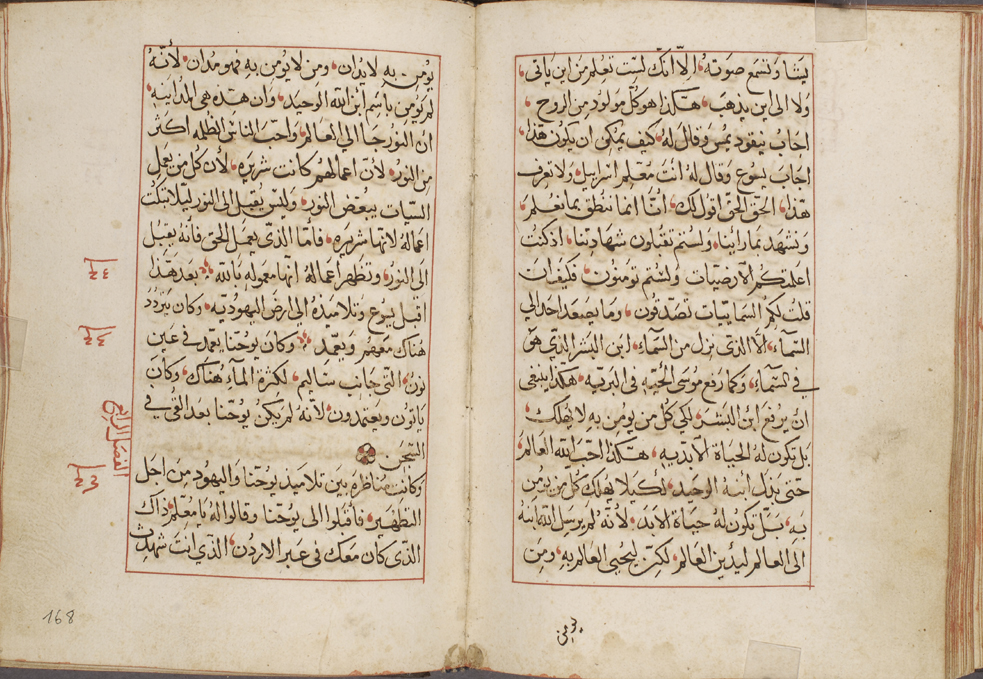 يشا وتسمع صوته الا انك لست تعلم من اين ياتى
ولا الى اين يذهب هكذا هو كل مولود من الروح
اجاب نيقوديموس وقال له كيف يمكن ان يكون هذا
اجاب يسوع وقال له انت معلم اسراييل ولا تعرف
هذا الحق الحق اقول لك اننا انما ننطق بما نعلم
ونشهد بما راينا ولستم تقبلون شهادتنا اذ كنت
اعلمتكم الارضيات ولستم تومنون فكيف ان
قلت لكم السماييات تصدقون وما يصعد احد الي
السماء الا الذى نزل من السماء ابن البشر الذى هو
في السماء وكما رفع موسى الحيه فى البريه هكذا ينبغى
ان يرفع ابن البشر لكي كل من يومن به لا يهلك
بل تكون له الحياة الابديه هكذا احب الله العالم
حتى بذل ابنه الوحيد لكيلا يهلك كل من يومن
به بل تكون له حياة الابد لانه لم يرسل الله ابنه
الى العالم ليدين العالم لكن ليحيى العالم به ومن
يومن
يومن به لا يدان ومن لا يومن به فهو مدان لانه
لم يومن باسم ابن الله الوحيد وان هذه هى المداينه
ان النور جا الي العالم واحب الناس الظلمه اكثر
من النور لان اعمالهم كانت شريره لان كل من يعمل
السيات يبغض النور وليس يقبل الى النور ليلا تبكت
اعماله لانها شريره فاما الذى يعمل الحق فانه يقبل
الى النور وتظهر اعماله انها معموله بالله بعد هذا
اقبل يسوع وتلاميذه الى ارض اليهوديه وكان يتردد
هناك معهم ويعمد وكان يوحنا يعمد فى عين
نون التى جانب ساليم لكثرة الماء هناك وكان
ياتون ويعتمدون لانه لم يكن يوحنا بعد القى فى
السجن
وكانت مناظره بين تلاميذ يوحنا واليهود من اجل
التطهير فاقبلوا الى يوحنا وقالوا له يا معلم ذاك
الذى كان معك فى عبر الاردن الذي انت شهدت
الفصل الرابع
168